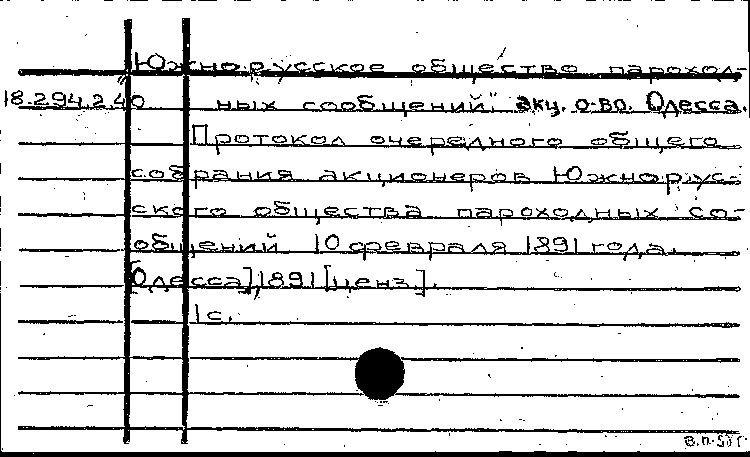 „Южно-русское общество пароход-
18.294.2.40 ных сообщений" акц. о-во. Одесса.
Протокол очередного общего
собрания акционеров Южно-рус-
ского общества пароходных со-
общений 10 февраля 1891 года.
[Одесса], 1891 [ценз.].
1с.